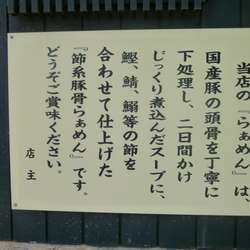 当店の『らぁめん』は、
国産豚の頭骨を丁寧に
下処理し、二日間かけ
じっくり煮込んだスープに、
鰹、鯖、鰯等の節を
合わせて仕上げた
『節系豚骨らぁめん』です。
どうぞご賞味ください。
店主